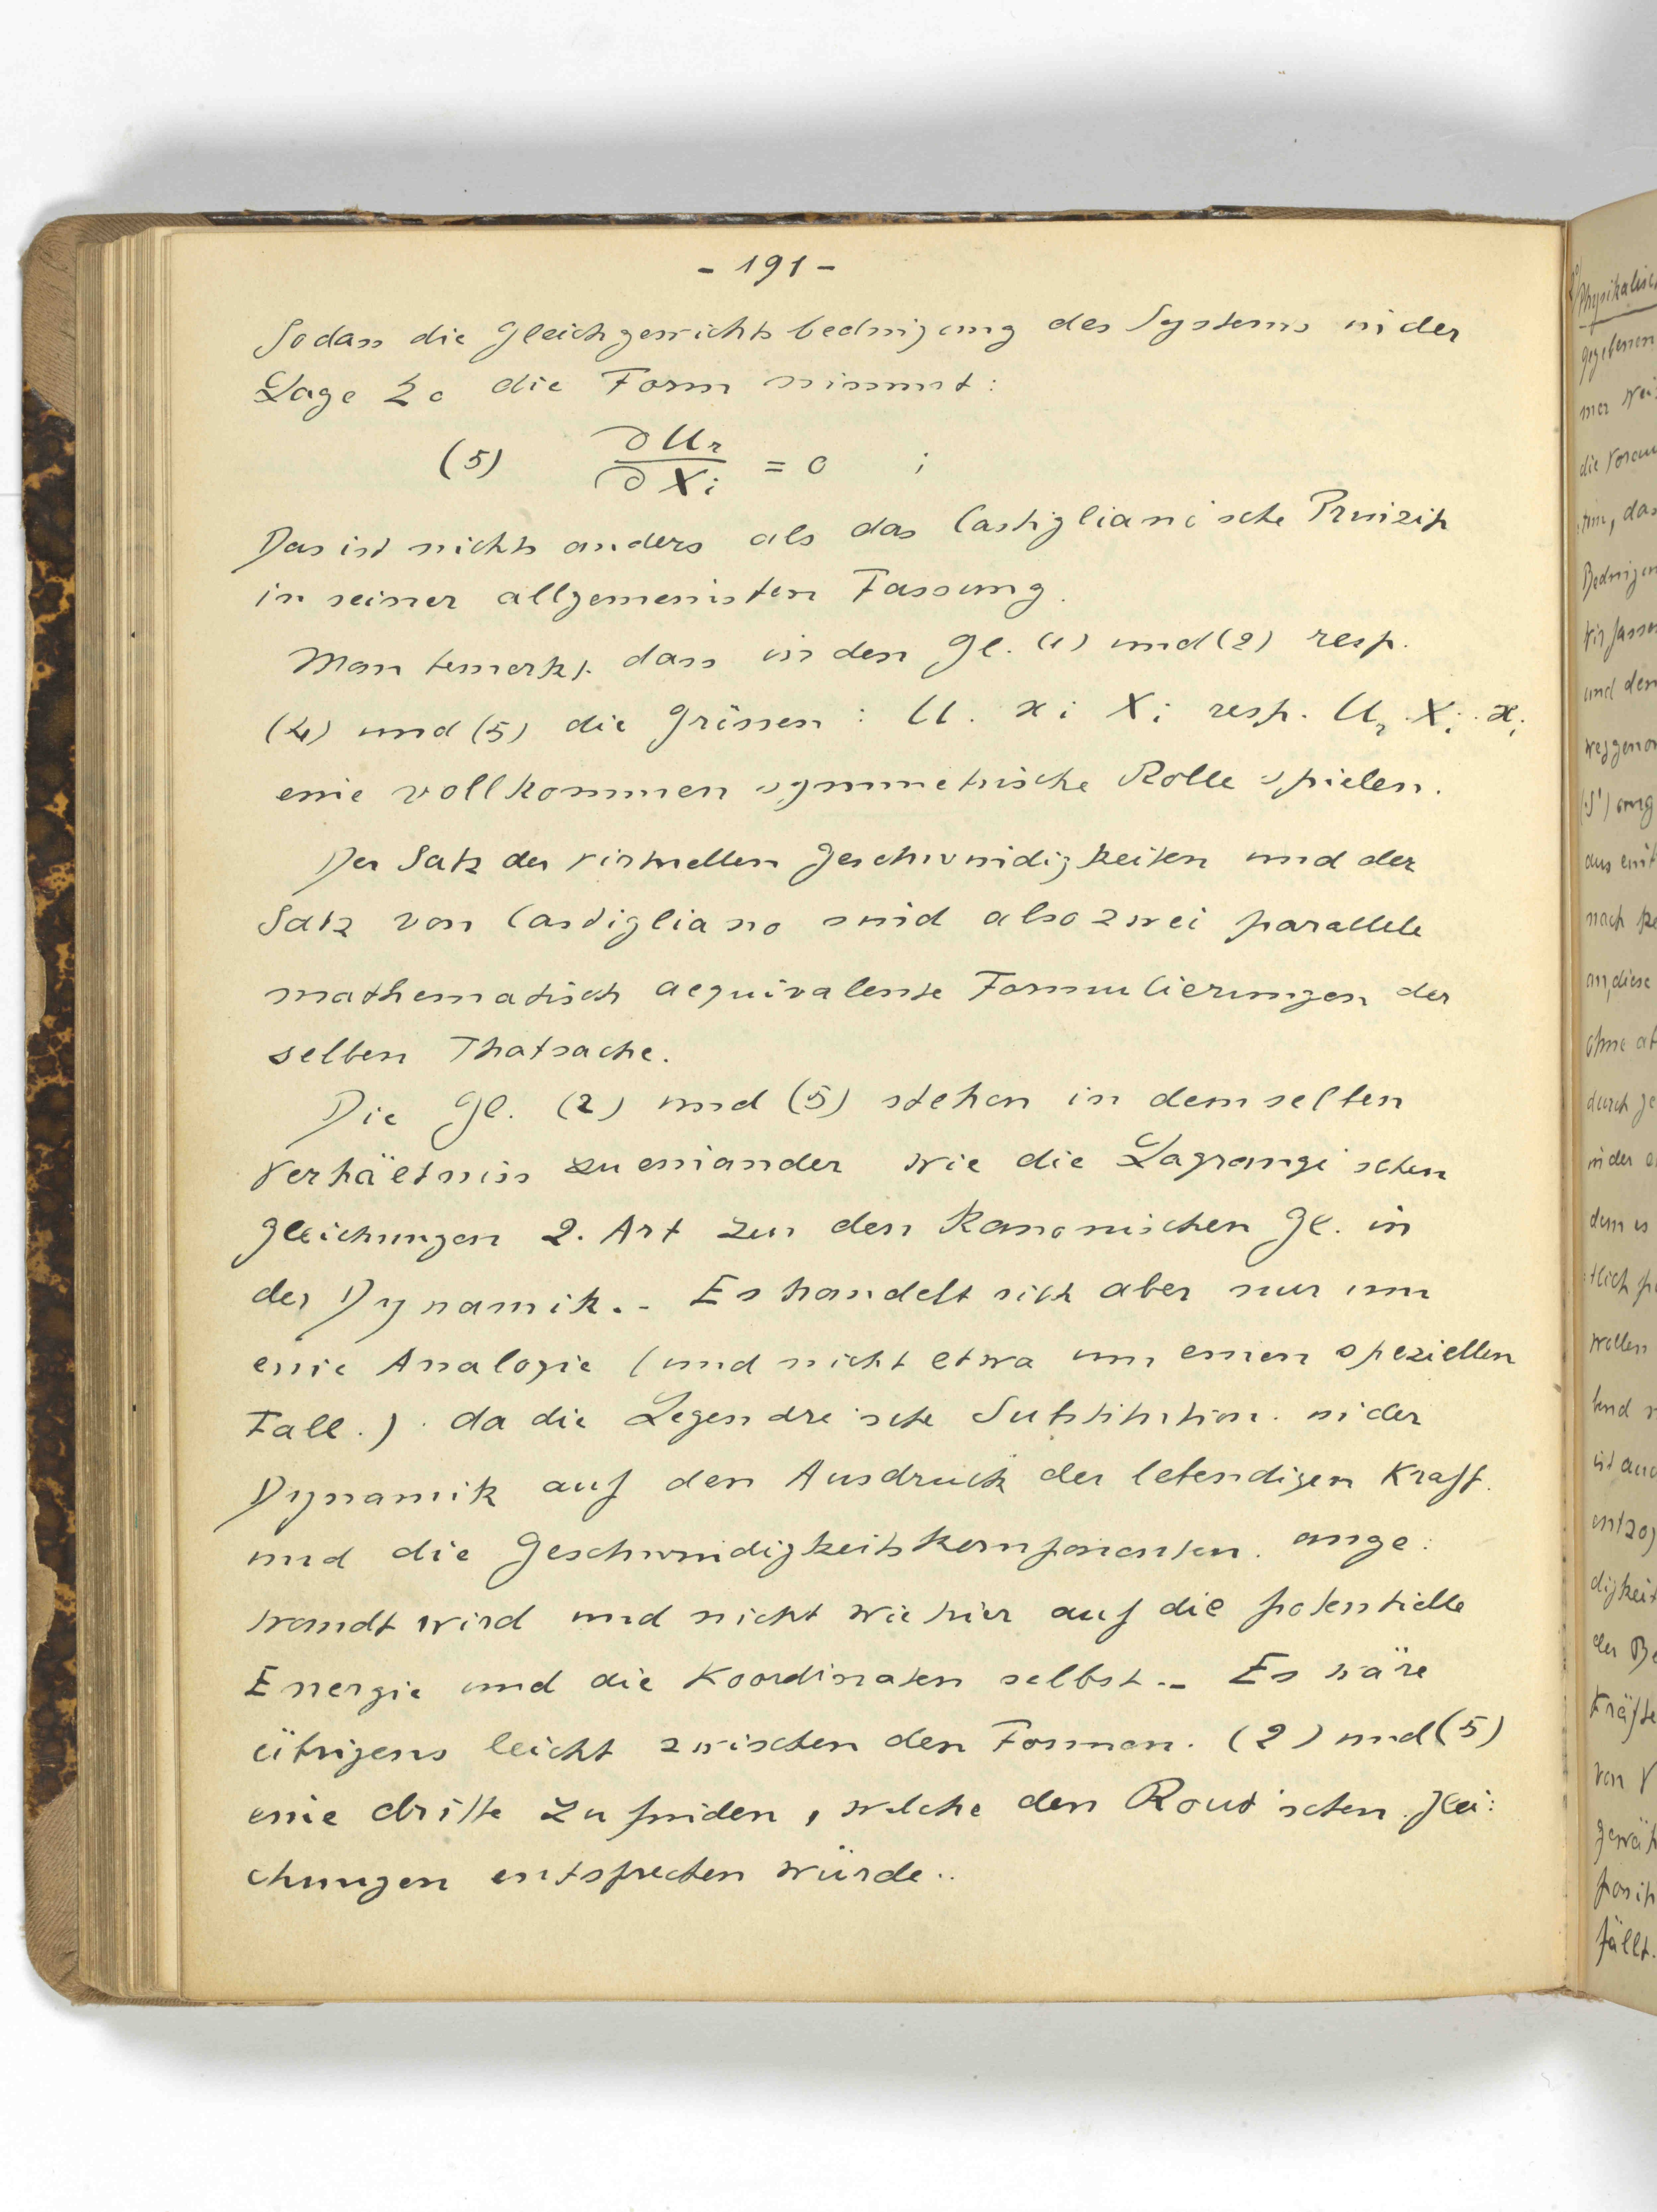 - 191 -
Sodass die Gleichgewichtsbedingung des Systems in der
Lage Σ₀ die Form nimmt:
(5) ∂U₂/∂Xᵢ = 0 ;
Das ist nichts anders als das Castigliani'sche Prinzip
in seiner allgemeinsten Fassung.
Man bemerkt. dass in den Gl. (1) und (2) resp.
(4) und (5) die Grössen : U. xᵢ Xᵢ resp. U₂ . Xᵢ . xᵢ
eine vollkommen symmetrische Rolle spielen.
Der Satz der virtuellen Geschwindigkeiten und der
Satz von Castigliano sind also zwei parallele
mathematisch aequivalente Formulierungen der
selben Thatsache.
Die Gl. (2) und (5) stehen in demselben
Verhältniss zueinander wie die Lagrange'schen
Gleichungen 2. Art zu den Kanonischen Gl. in
der Dynamik. - Es handelt sich aber nur um
eine Analogie (und nicht etwa um einen speziellen
Fall.) . da die Legendre'sche Substitution. in der
Dynamik auf den Ausdruck der lebendigen Kraft.
und die Geschwindigkeitskomponenten. ange:
wandt wird und nicht wie hier auf die potentielle
Energie und die Koordinaten selbst. - Es wäre
übrigens leicht zwischen den Formen. (2) und (5)
eine dritte zu finden, welche den Rout'schen Glei:
chungen entsprechen würde..
Physikalisch
gegebenen
mer
die
, das
wir fassen
und den
(S')
nach
an, diese
ohne
durch
in der
dem es
wollen
und
ist
digkeit
der
Kräfte
von
fällt.